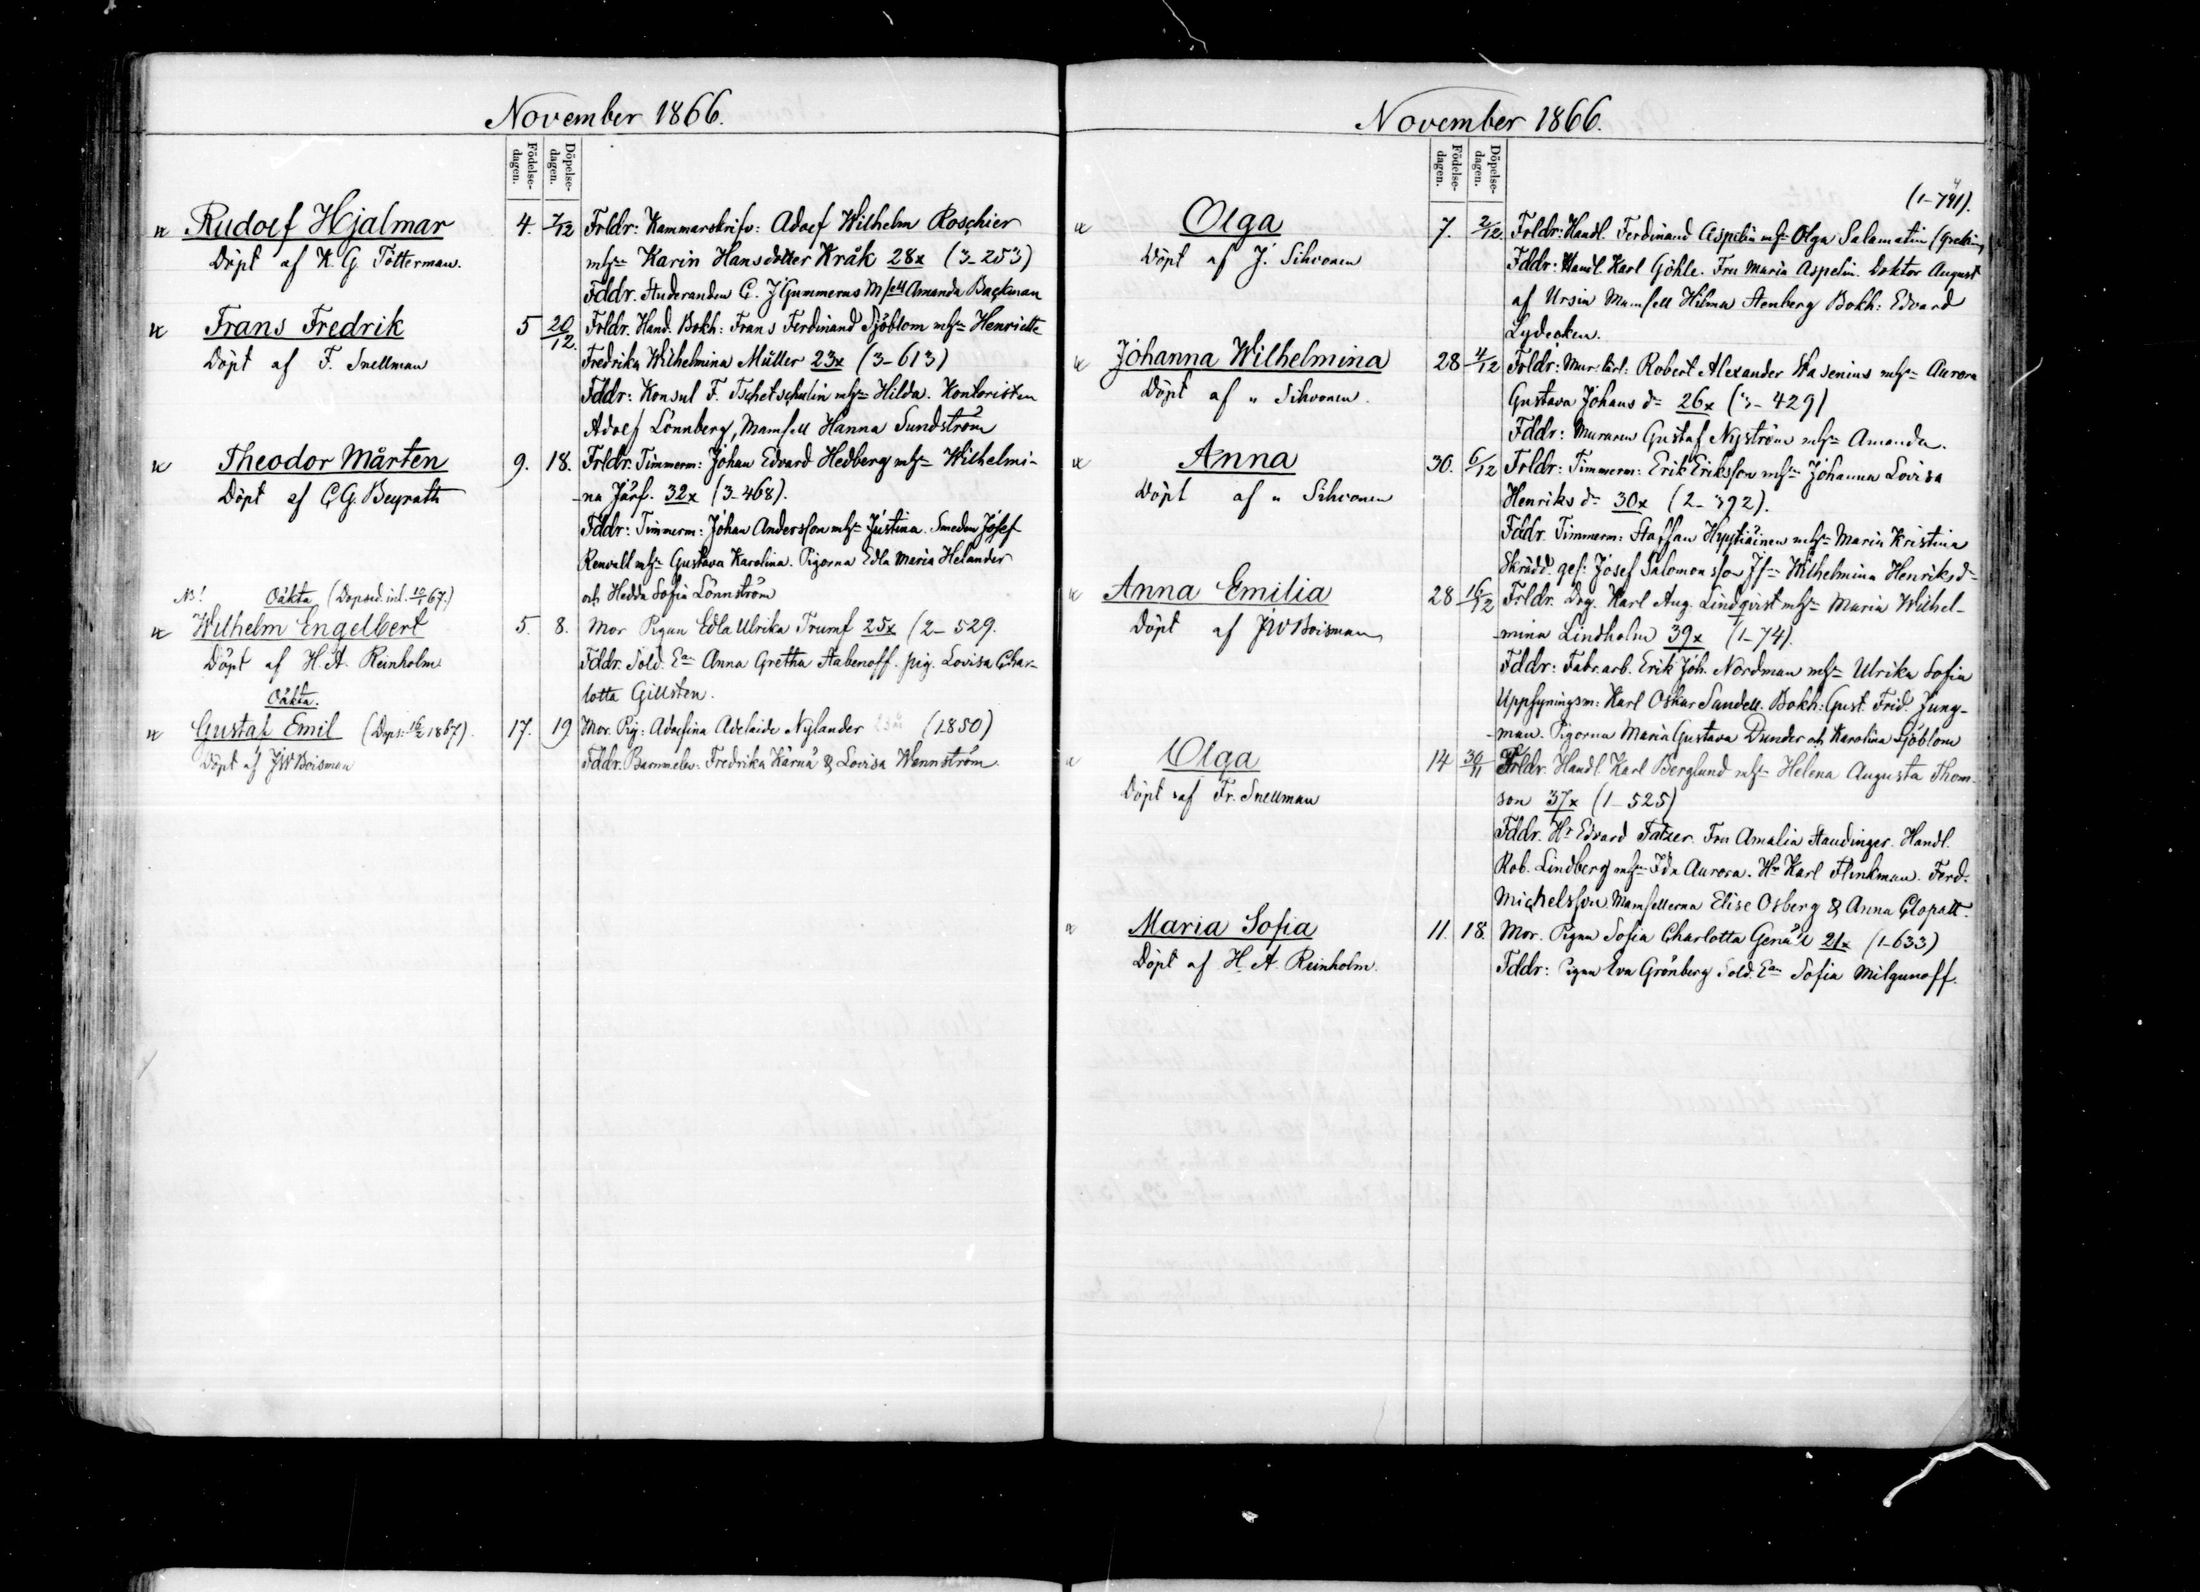 November 1866.
Födelse-dagen.
Döpelse-dagen.
Rudolf Hjalmar 4. 7/12 Frldr: Kammarskrifv: Adolf Wilhelm Roschier
Döpt af K. G. Tötterman. Karin Hansdotter Kråk 28x (3-253)
Fddr. Studeranden C. J Gummerus Msell Amanda Backman
Frans Fredrik 5 20/12. Frldr. Hand. Bokh: Frans Ferdinand Sjöblom Henriette
Döpt af F. Snellman Fredrika Wilhelmina Müller 23x (3-613)
Fddr: Konsul F. Tschetschulin Hilda. Kontoristen
Adolf Lönnberg, Mamsell Hanna Sundström
Theodor Mårten 9. 18. Frldr. Timmerm: Johan Edvard Hedberg Wilhelmi-
Döpt af C G. Beyrath -na Järf. 32x (3-468).
Fddr: Timmerm: Johan Andersson Justina. Smeden Josef
Renvall Gustava Karolina. Pigorna Edla Maria Helander
och Hedda Sofia Lönnström
Oäkta
Wilhelm Engelbert 5. 8. Mor Pigan Edla Ulrika Trumf 25x (2-529.
Döpt af H. A. Reinholm Fddr. Sold. Ean Anna Gretha Stabenoff. pig. Lovisa Char-
lotta Gillsten.
Oäkta.
Gustaf Emil 17. 19 Mor. Pig: Adolfina Adelaide Nylander (1.850)
Döpt af JW Boisman Fddr. Barnmeln. Fredrika Kärnä & Lovisa Wennström
November 1866.
Födelse-dagen.
Döpelse-dagen.
Olga 7. 2/12 Frldr: Handl. Ferdinand Aspelin Olga Salamatin
Döpt af J. Sihvonen Fddr: Handl. Karl Göhle. Fru Maria Aspelin. Doktor August
af Ursin Mamsell Hilma Stenberg Bokh: Edvard
Lydecken.
Johanna Wilhelmina 28 4/12 Frldr: Robert Alexander Wasenius Aurora
Döpt af " Sihvonen. Gustava Johans dr 26x (3-429)
Fddr: Muraren Gustaf Nyström Amanda.
Anna 30. 6/12 Frldr: Timmerm: Erik Eriksson Johanna Lovisa
Döpt af " Sihvonen Henriks dr 30x (2-392).
Fddr. Timmerm: Staffan Hyytiäinen Maria Kristina
Skrädd. ges: Josef Salomonsson Wilhelmina Henriks dr
Anna Emilia 28 16/12 Frldr. Drg. Karl Aug. Lindqvist Maria Wilhel-
Döpt af JW Boisman -mina Lindholm 39x (1-74).
Fddr: Fabr. arb. Erik Joh. Nordman Ulrika Sofia
Uppsyningsm: Karl Oskar Sandell. Bokh: Gust. Frid. Jung-
-man. Pigorna Maria Gustava Dunder och Karolina Sjöblom
Olga 14 30/11 Frldr. Handl. Karl Berglund Helena Augusta Thom-
Döpt af Fr. Snellman son 37x (1-525)
Fddr. Hr Edvard Fatzer. Fru Amalia Staudinger. Handl.
Rob. Lindberg Ida Aurora. Hr Karl Flinkman. Ferd.
Michelsson. Mamsellerna Elise Osberg & Anna Clopatt.
Maria Sofia 11. 18. Mor. Pigan Sofia Charlotta 21x (1-633)
Döpt af H. A. Reinholm. Fddr: Pigan Eva Grönberg Sold. Ean Sofia Milgunoff.